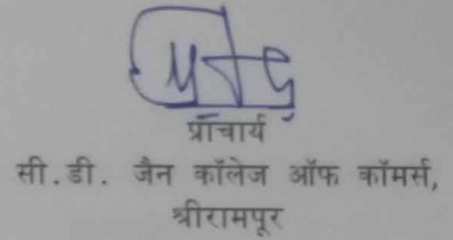 प्राचार्य
सी.डी. जैन कॉलेज ऑफ कॉमर्स,
श्रीरामपूर